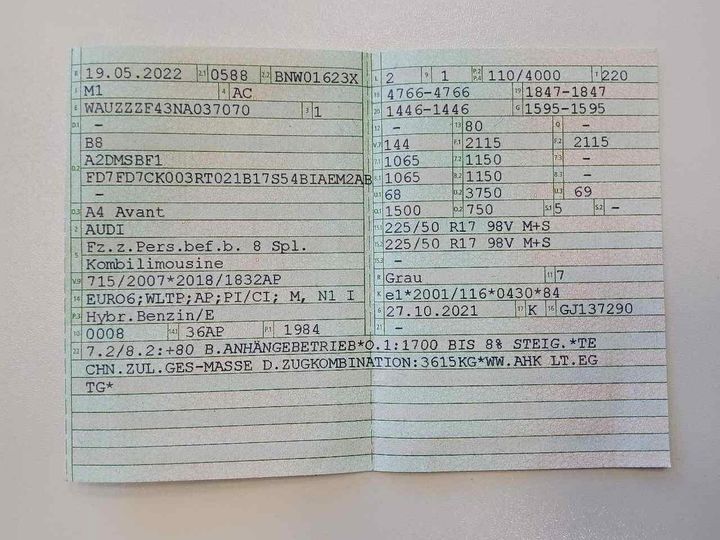 B 19.05.2022 2.1 0588 2.2 BNW01623X
J M1 4 AC
E WAUZZZF43NA037070 3 1
D.1 -
B8
D.2 A2DMSBF1
FD7FD7CK003RT021B17S54BIAEM2AB
-
D.3 A4 Avant
2 AUDI
5 Fz.z.Pers.bef.b. 8 Spl.
Kombilimousine
V.9 715/2007*2018/1832AP
14 EURO6;WLTP;AP;PI/CI; M, N1 I
P.3 Hybr.Benzin/E
10 0008 14.1 36AP P.1 1984
22 7.2/8.2:+80 B.ANHÄNGEBETRIEB*O.1:1700 BIS 8% STEIG.*TE
CHN.ZUL.GES-MASSE D.ZUGKOMBINATION:3615KG*WW.AHK LT.EG
TG*
L 2 9 1 P.2 P.4 110/4000 T 220
18 4766-4766 19 1847-1847
20 1446-1446 G 1595-1595
12 - 13 80 Q -
V.7 144 F.1 2115 F.2 2115
7.1 1065 7.2 1150 7.3 -
8.1 1065 8.2 1150 8.3 -
U.1 68 U.2 3750 U.3 69
O.1 1500 O.2 750 S.1 5 S.2 -
15.1 225/50 R17 98V M+S
15.2 225/50 R17 98V M+S
15.3 -
R Grau 11 7
K e1*2001/116*0430*84
6 27.10.2021 17 K 16 GJ137290
21 -